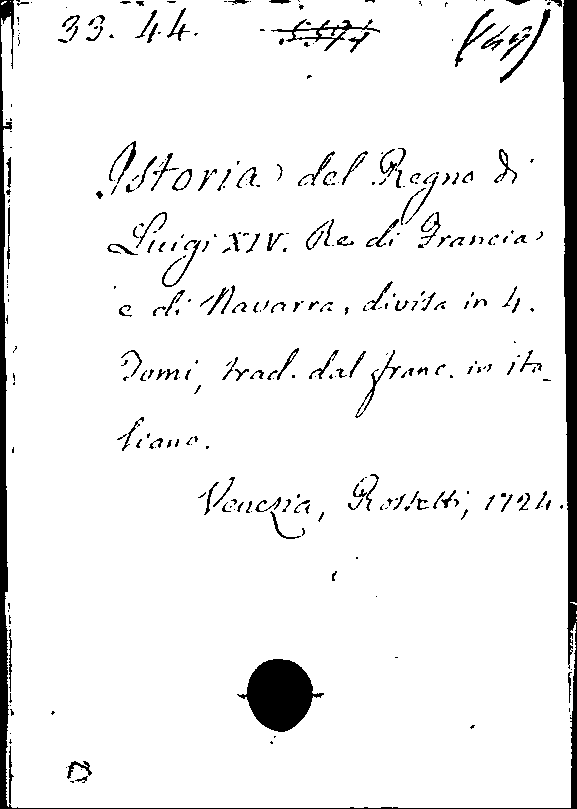 33. 44. 5574 (49)
Istoria del Regno di
Luigi XIV. Re di Francia
e di Navarra, divisa in 4.
Tomi, trad. dal franc. in ita-
liano.
Venezia, Rossetti, 1724.